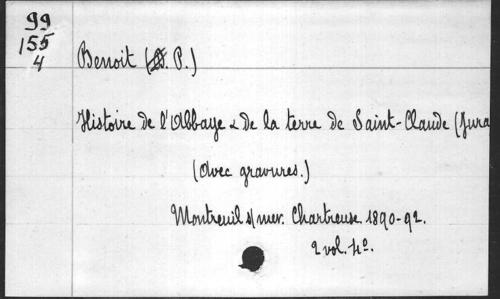 99
155
4
Benoit (D. P.)
Histoire de l'Abbaye & de la terre de Saint-Claude (Jura
(Avec gravures.)
Montreuil s/mer. Chartreuse. 1890-92.
2 vol. 4º.